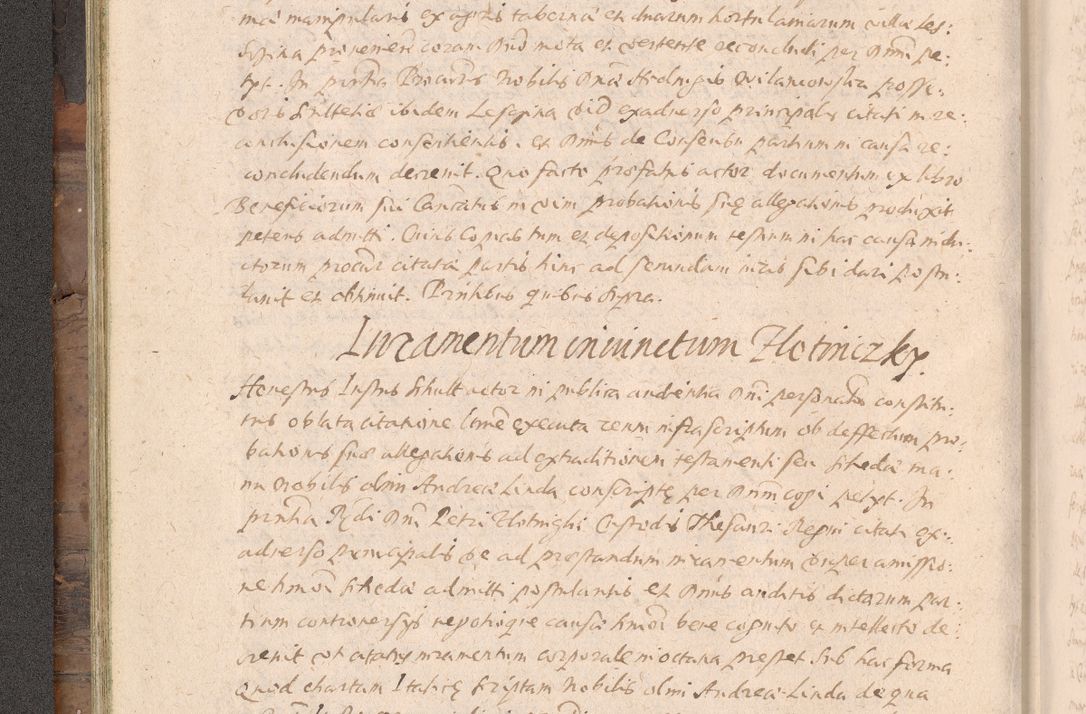 ma manipularis ex agris taberna et duarum hortulaniarum villae Les:
gina provenire coram Dno mota et vertente reconcludi per Dnum pe:
tyt. In pntia Procuris Nobilis Dnae Hedvigis Wilamowska posse:
soris Sculteti ibidem Lesgina uti ex adverso principalis citati in re:
conclusionem consentientis. et Dnus de Consensu partium in causa re:
concludendum decrevit. Quo facto praefatus actor documentum ex libro
Beneficiorum sui Cancatus in vim probationis suae allegationis produxit
petens admitti. Cuius Copias tum et depositionum testium in hac causa indu:
ctorum procur citatae partis hinc ad secundam iuris sibi dari postu:
lavit et obtinuit. Pntibus quibus supra.
Iuramentum iniunctum Zlotniczky.
Honestus Iustus Schult actor in publica audientia Dni personalr constitu:
tus oblata citatione lttime executa rerum infrascriptum ob deffectum pro:
bationis suae allegationis ad extraditionem testamenti seu schedae ma:
nu Nobilis olim Andreae Linda conscriptae per Dnum cogi petyt. In
pntia Rndi Dni Petri Zlotnighi Custodis Thesauri Regni citati ex:
adverso principalis se ad praestandum iuramentum super amissio:
ne hmoi schedae admitti postulantis et Dnus auditis dictarum par:
tium controversys negotioque causae hmoi bene cognito et intellecto de:
crevit ut citatus iuramentum corporale in octava prestet sub hac forma
Quod chartam Italicae scriptam Nobilis olim Andreae Linda de qua